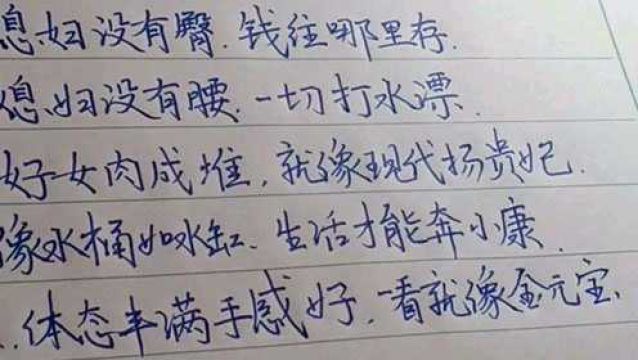 媳妇没有臀.钱往哪里存.
媳妇没有腰.一切打水漂.
好女肉成堆.就像现代扬贵妃.
像水桶如水缸、生活才能奔小康.
.体态丰满手感好.一看就像金元宝.